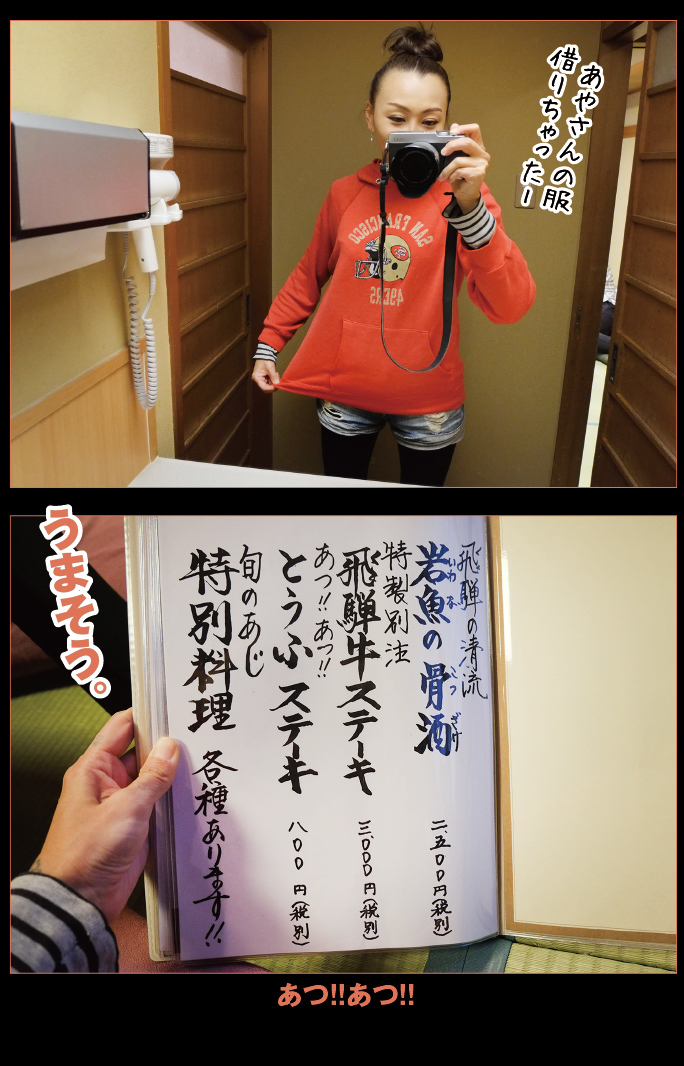 あやさんの服
借りちゃったー
SAN FRANCISCO
49ERS
うまそう。
飛騨の清流
岩魚の骨酒
いわな
こつざけ
二、五〇〇円(税別)
特製別注
飛騨牛ステーキ
三、〇〇〇円(税別)
あつ!!あつ!!
とうふステーキ
八〇〇円(税別)
旬のあじ
特別料理 各種あります!!
あつ!!あつ!!